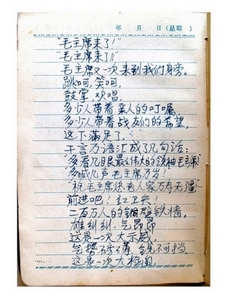 年 月 日(星期 )
"毛主席来了!"
"毛主席来了!"
毛主席又一次来到我们身旁。
跳呵,笑呵,
鼓掌,欢唱。
多少人带着亲人的叮嘱,
多少人带着战友们的希望,
这下满足了,
千言万语汇成了几句话:
"多看几眼最伟大的领袖毛泽
多喊几声毛主席万岁!
"祝毛主席他老人家万寿无疆"
前进吧!红卫兵!
二百万人的钢铁
雄纠纠,气昂昂
这是一次大示威,
气势磅礴,势不可挡
这是一次大检阅